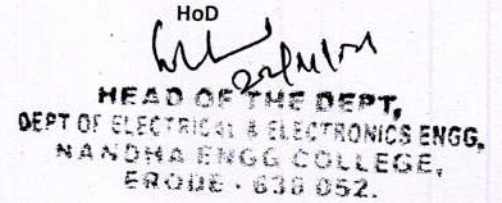 HoD
HEAD OF THE DEPT,
DEPT OF ELECTRICAL & ELECTRONICS ENGG,
NANDHA ENGG COLLEGE,
ERODE - 638 052.